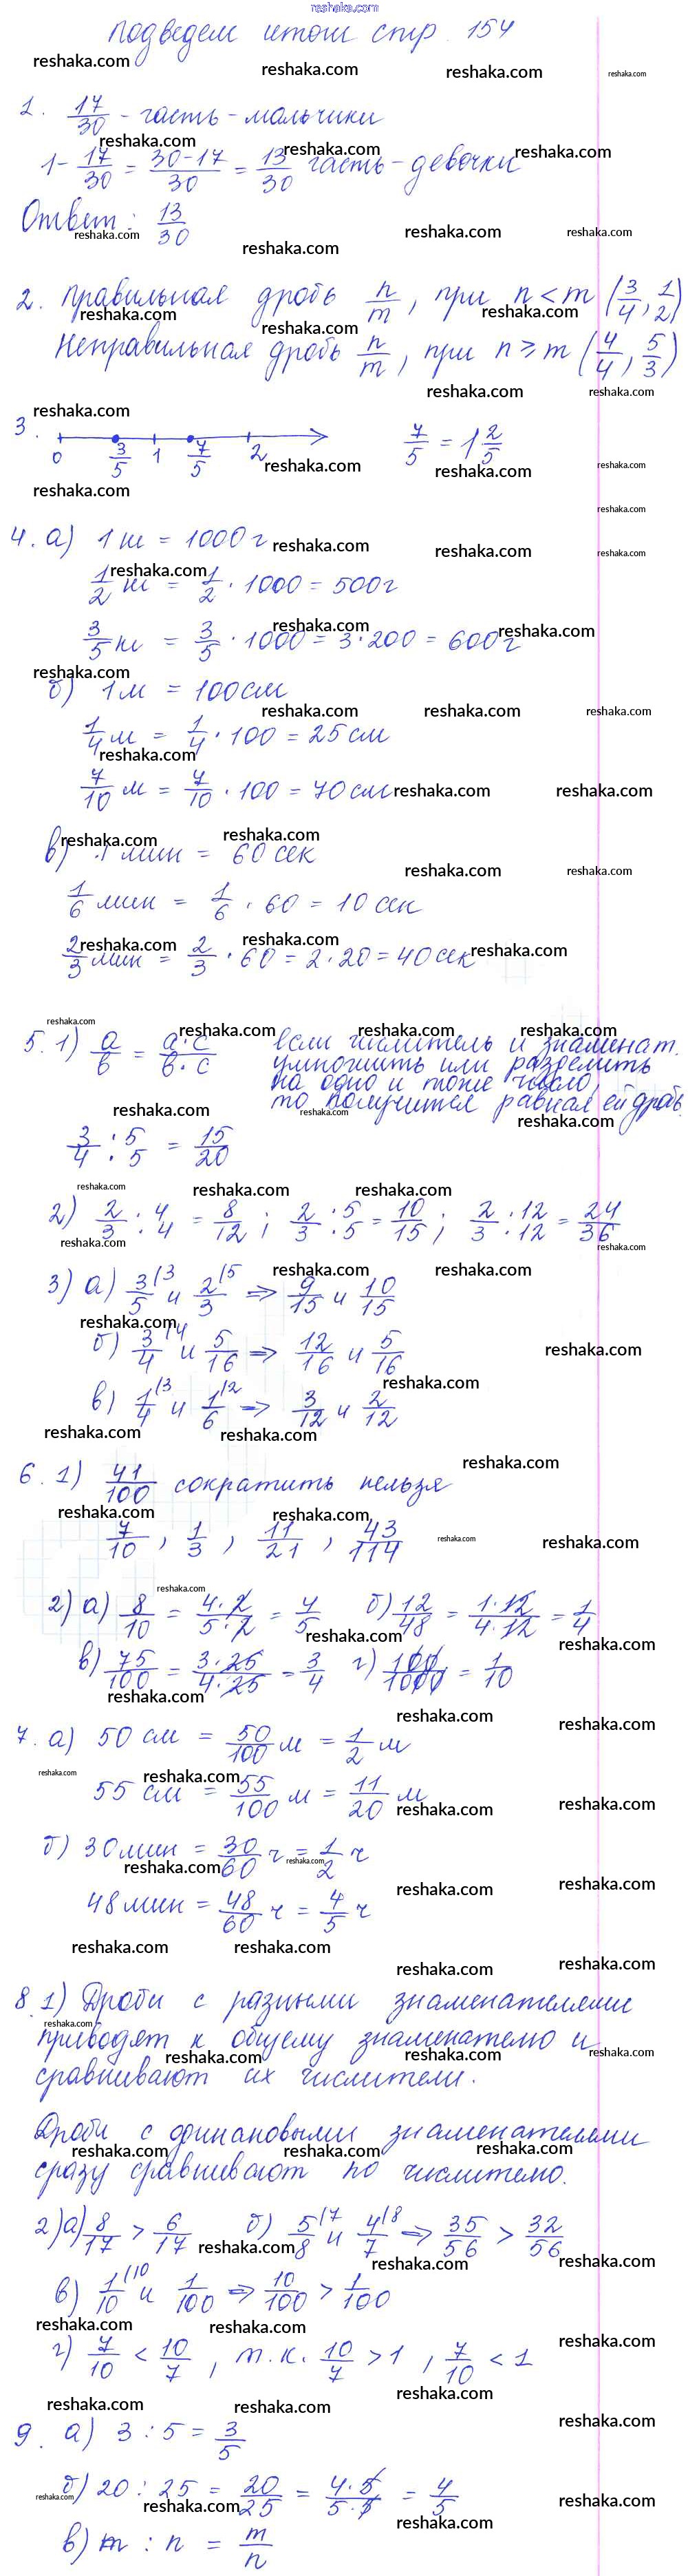 reshaka.com
Подведем итоги стр. 154
1. 17/30 - часть - мальчики
1 - 17/30 = (30-17)/30 = 13/30 часть - девочки
Ответ: 13/30
2. Правильная дробь n/m, при n < m (3/4, 1/2)
Неправильная дробь n/m, при n ⩾ m (4/4, 5/3)
3. 0 3/5 1 7/5 2 7/5 = 1 2/5
4. а) 1 кг = 1000 г
1/2 кг = 1/2 · 1000 = 500 г
3/5 кг = 3/5 · 1000 = 3 · 200 = 600 г
б) 1 м = 100 см
1/4 м = 1/4 · 100 = 25 см
7/10 м = 7/10 · 100 = 70 см
в) 1 мин = 60 сек
1/6 мин = 1/6 · 60 = 10 сек
2/3 мин = 2/3 · 60 = 2 · 20 = 40 сек
5. 1) a/b = (a·c)/(b·c) если числитель и знаменат.
умножить или разделить
на одно и тоже число,
то получится равная ей дробь.
3/4 : 5/5 = 15/20
2) 2/3 : 4/4 = 8/12 ; 2/3 : 5/5 = 10/15 ; 2/3 : 12/12 = 24/36
3) а) 3/5 (3 и 2/3 (5 => 9/15 и 10/15
б) 3/4 (4 и 5/16 => 12/16 и 5/16
в) 1/4 (3 и 1/6 (2 => 3/12 и 2/12
6. 1) 41/100 сократить нельзя
7/10, 1/3, 11/21, 43/114
2) а) 8/10 = (4·2)/(5·2) = 4/5 б) 12/48 = (1·12)/(4·12) = 1/4
в) 75/100 = (3·25)/(4·25) = 3/4 г) 100/1000 = 1/10
7. а) 50 см = 50/100 м = 1/2 м
55 см = 55/100 м = 11/20 м
б) 30 мин = 30/60 ч = 1/2 ч
48 мин = 48/60 ч = 4/5 ч
8. 1) Дроби с разными знаменателями
приводят к общему знаменателю и
сравнивают их числители.
Дроби с одинаковыми знаменателями
сразу сравнивают по числителю.
2) а) 8/17 > 6/17 б) 5/8 (7 и 4/7 (8 => 35/56 > 32/56
в) 1/10 (10 и 1/100 => 10/100 > 1/100
г) 7/10 < 10/7, т.к. 10/7 > 1, 7/10 < 1
9. а) 3 : 5 = 3/5
б) 20 : 25 = 20/25 = (4·5)/(5·5) = 4/5
в) m : n = m/n